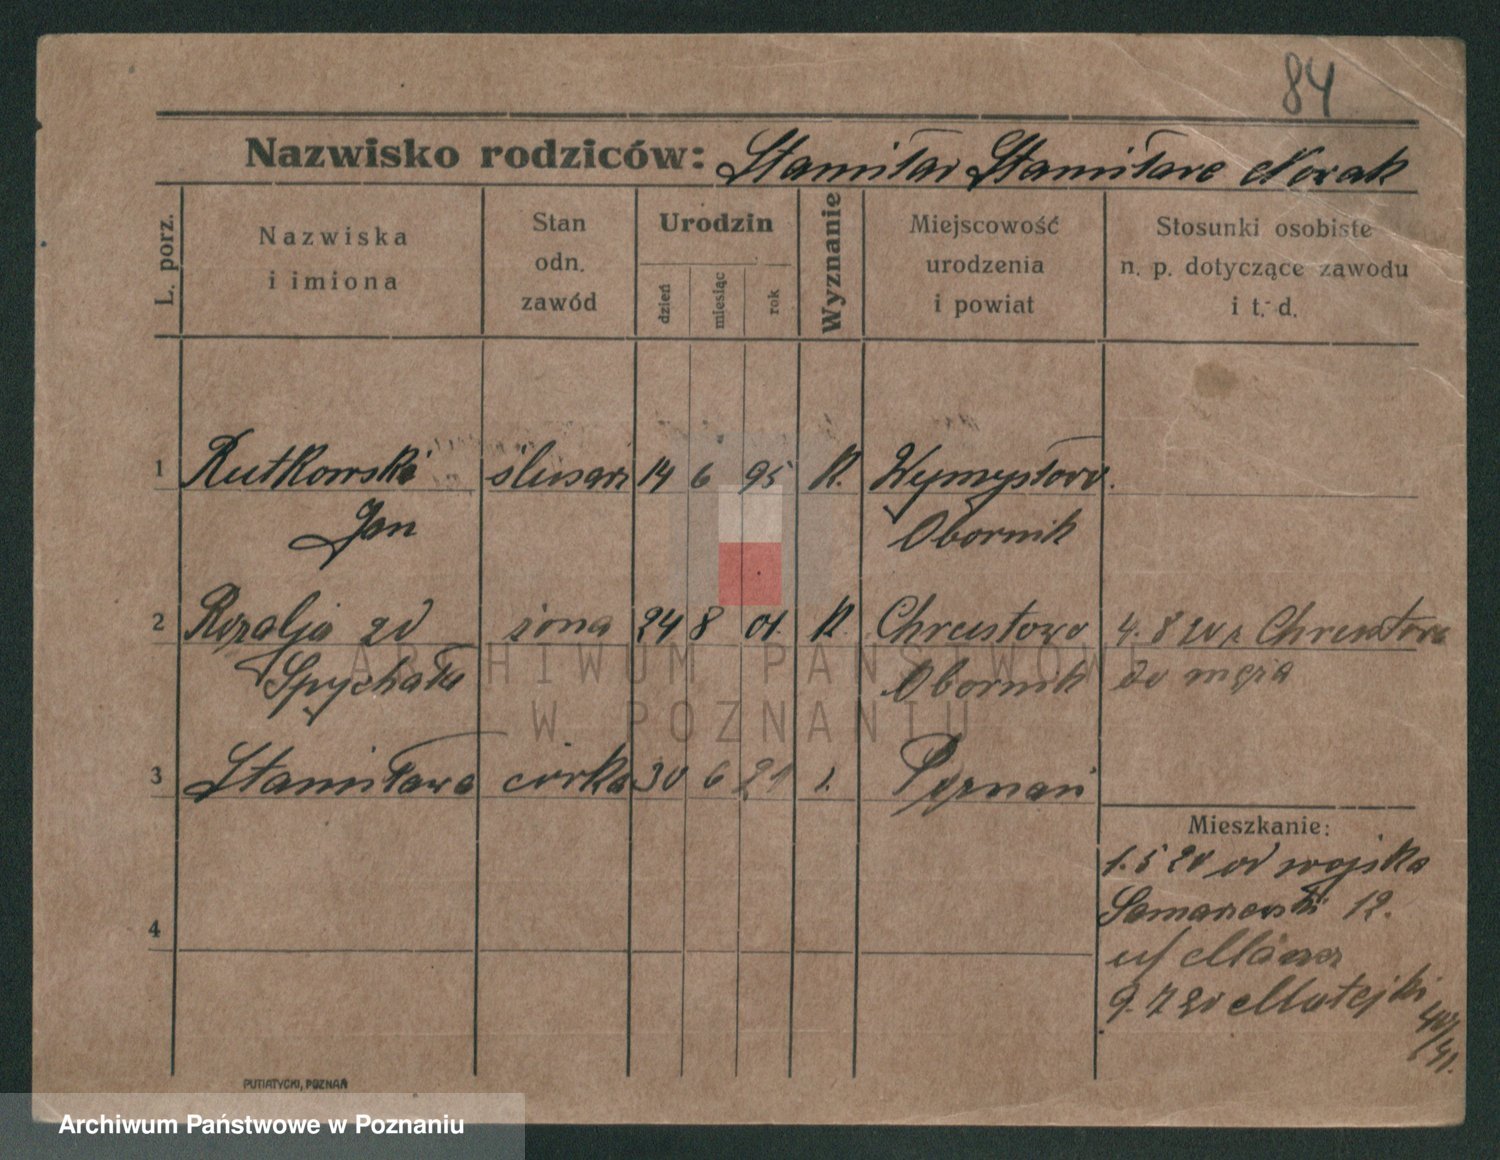 84
Nazwisko rodziców: Stanisław Stanisława Nowak
L. porz.
Nazwiska i imiona
Stan odn. zawód
Urodzin
dzień
miesiąc
rok
Wyznanie
Miejscowość urodzenia i powiat
Stosunki osobiste n. p. dotyczące zawodu i t. d.
1 Rutkowski ślusarz 14 6 95 K. Wymysłowo.
Jan Obornik
2 Rozalja zd żona 24 8 01. K. Chrustowo 4. 8 20 z Chrustowa
Spychała Obornik do męża
3 Stanisława córka 30 6 21 Poznań
Mieszkanie:
1. 5 20 od wojska
12.
4
u/
9. 7 20 Matejki
PUTIATYCKI, POZNAŃ
ARCHIWUM PAŃSTWOWE
W POZNANIU
Archiwum Państwowe w Poznaniu